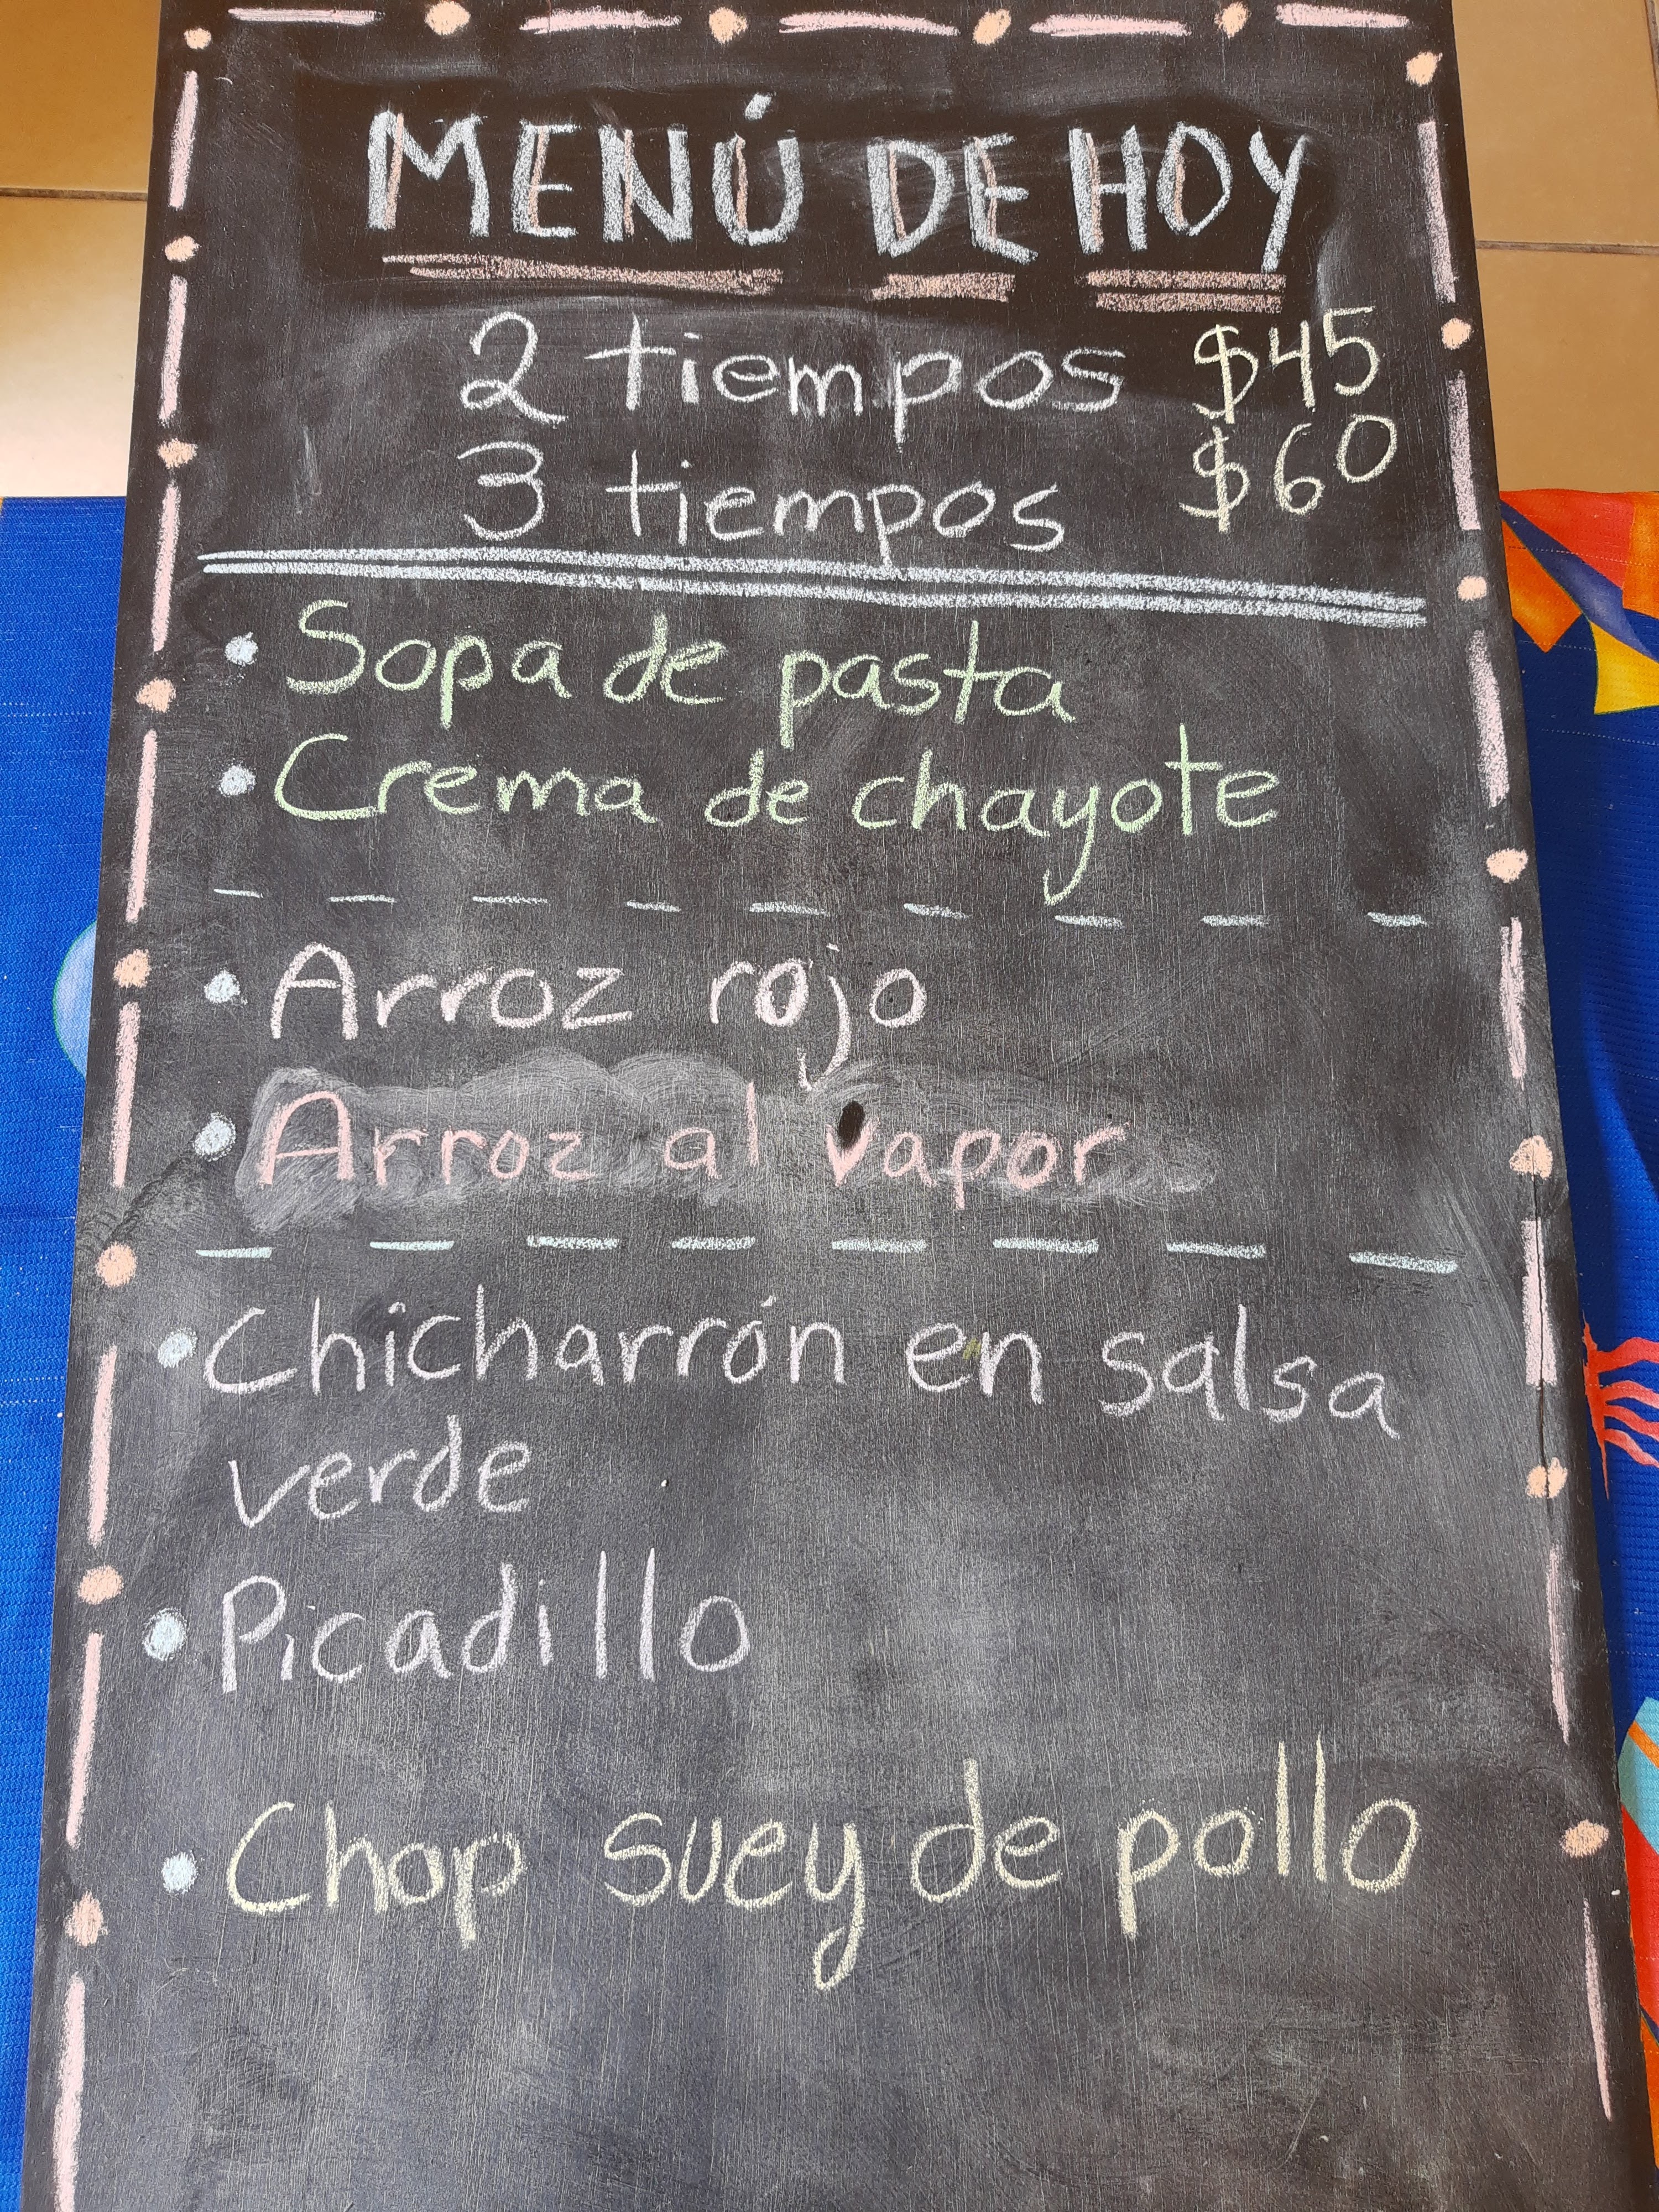 MENÚ DE HOY
2 tiempos $45
3 tiempos $60
• Sopa de pasta
• Crema de chayote
• Arroz rojo
• Arroz al vapor
• Chicharrón en salsa
verde
• Picadillo
• Chop suey de pollo